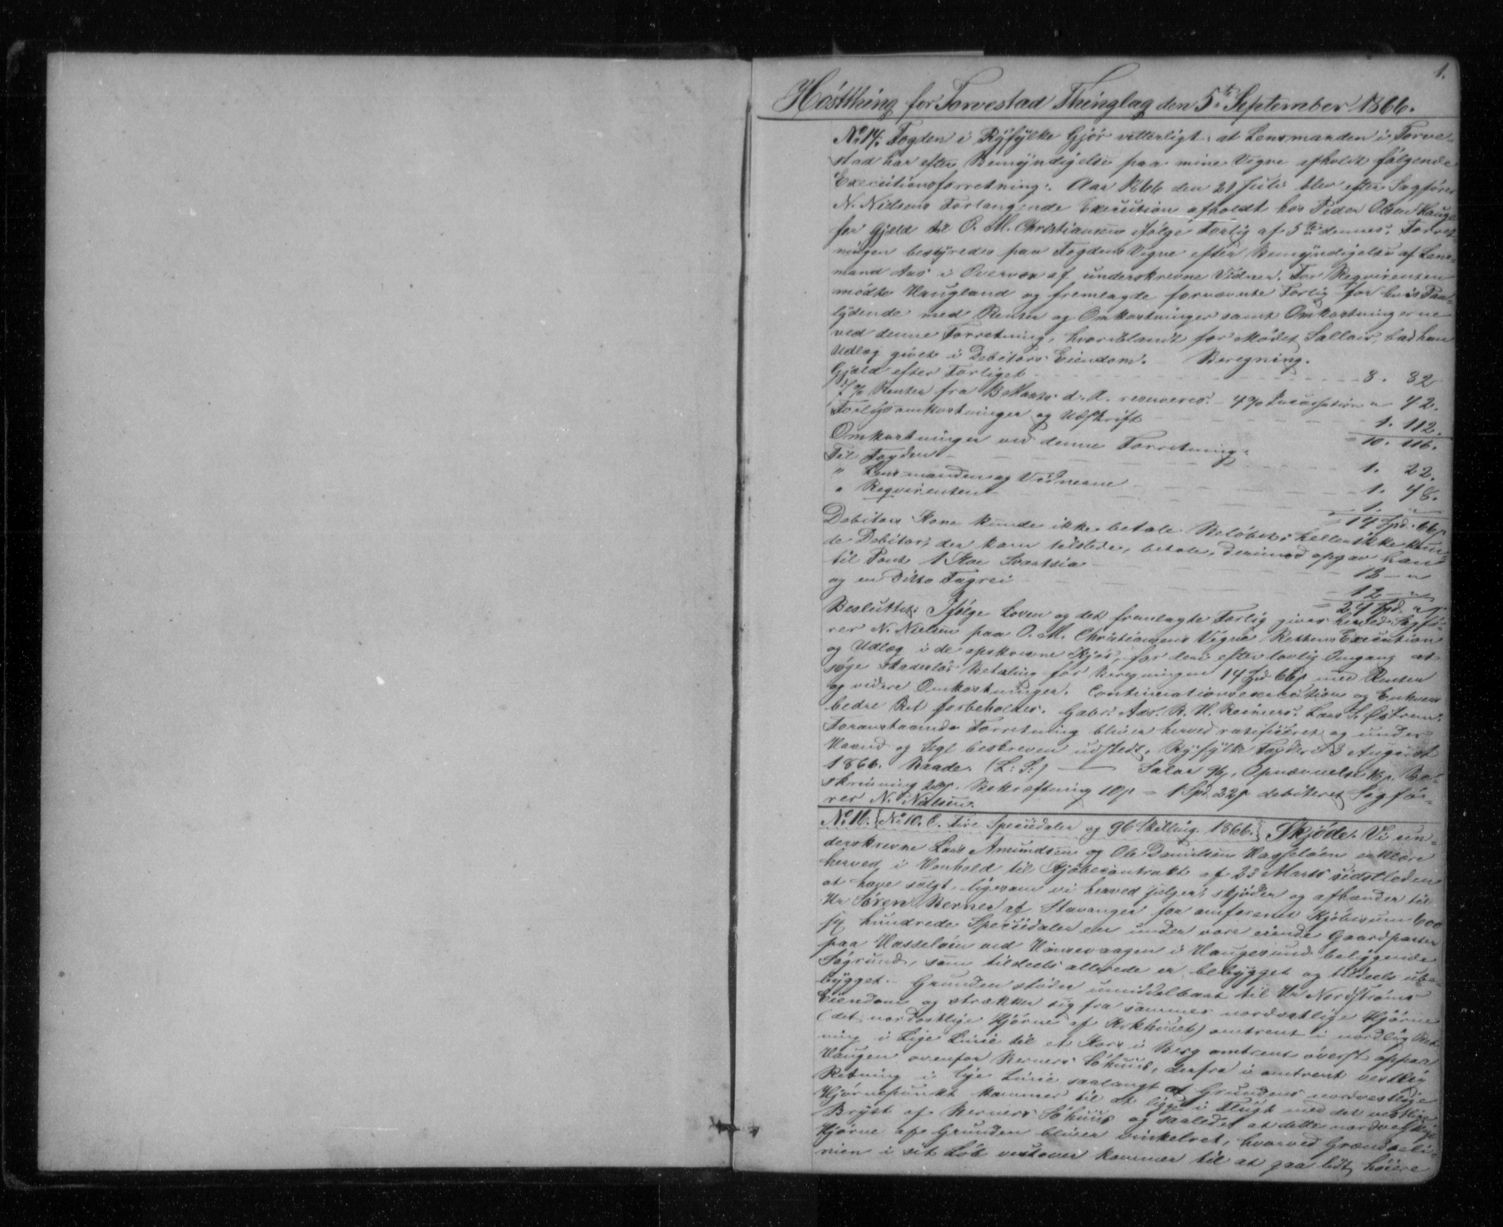 1.
Høstthing for Torvestad Thinglag den 5te September 1866.
No 14. Fogden i Ryfylke Gjør vitterligt: at Lensmanden i Torve-
stad har efter Bemyndigelse paa mine Vegne afholdt følgende
Executionsforretning: Aar 1866 den 21 Juli blev efter Sagfører
N. Nielsens Forlangende Execution afholdt hos Peder Olsen Hauge
for Gjeld til O. M. Christiansen ifølge Forlig af 5te dennes. Forret-
ningen bestyredes paa Fogdens Vegne efter Bemyndigelse af Lens-
mand Aas i Overvær af underskrevne Vidner. For Reqvirenten
mødte Haugland og fremlagde fornævnte Forlig for hvis Paa-
lydende med Renter og Omkostninger samt Omkostningerne
ved denne Forretning, hvoriblandt for Mødet Sallair, bad han
Udlæg givet i Debitors Eiendom. Beregning.
Gjæld efter Forliget 8. 82
Renter fra d. A. reserveres - 4% " 42.
Forligsomkostninger og Udskrift 1. 112.
10. 116.
Omkostninger ved denne Forretning:
Til Fogden 1. 22.
" Lensmanden og Vidnerne 1. 48.
" Reqvirenten 1. "
14 Spd. 66 s
Debitors Kone kunde ikke betale Beløbet; heller ikke kun-
de Debitor, der kom tilstede, betale, derimod opgav han
til Pant 1 Koe Svartsia 12 - "
og en Ditto Fagrei 12 - "
24 Spd. "
Besluttet: Ifølge Loven og det fremlagte Forlig gives herved Sagfø-
rer N. Nielsen paa O. M. Christiansens Vegne Rettens Execution
og Udlæg i de opskrevne Kjør, for deri efter lovlig Omgang at
søge skadesløs Betaling for Beregningen 14 Spd 66 s med Renter
og videre Omkostninger. Continuationsexecution og Enhvers
bedre Ret forbeholdes. Gabr. Aas. R. H. Reimers. Lars S. Østrem.
Foranstaaende Forretning bliver herved ratificeret og under
Haand og Segl beskreven udstedt. Ryfylke Fogderi 3 August
1866. Baade. (L: S:) — Salar 96, Opnævnelse Be-
skrivning 28 s. Bekræftning 10 s = 1 Spd. 22 s debiteret Sagfø-
rer N. Nielsen.
No 16. {No 10. C. tre Speciedaler og 96 Skilling. 1866.} Skjøde. Vi un-
derskrevne Lars Amundsen og Ole Danielsen Hasseløen erklære
herved i Henhold til Kjøbecontrakt af 23 Marts sidstleden
at have solgt, ligesom vi herved sælger, skjøder og afhænder til
Hr Søren Berner af Stavanger for omforenet Kjøbesum 600
sex hundrede Speciedaler en under vore eiende Gaardparter
paa Hasseløen ved Hønsevaagen i Haugesund beliggende
Søgrund, som tildeels allerede er bebygget og tildeels ube-
bygget. Grunden støder umiddelbart til Hr Nordstrøms
Eiendom og strækker sig fra sammes nordostlige Hjørne
(det nordostlige Hjørne af Kokhuset) omtrent i nordlig Ret-
ning i lige Linie til et Kors i Berg omtrent øverst oppaa
Haugen ovenfor Berners Søhuus, derfra i omtrent vestlig
Retning i lige Linie saalangt at Grundens nordvestlige
Hjørnepunkt kommer til at ligge i Flugt med det vestlige
Bryst af Berners Søhuus og saaledes at dette nordvestlige
Hjørne af Grunden bliver vinkelret, hvorved Grændseli-
nien i sit Løb vestover kommer til at gaa lidt høiere